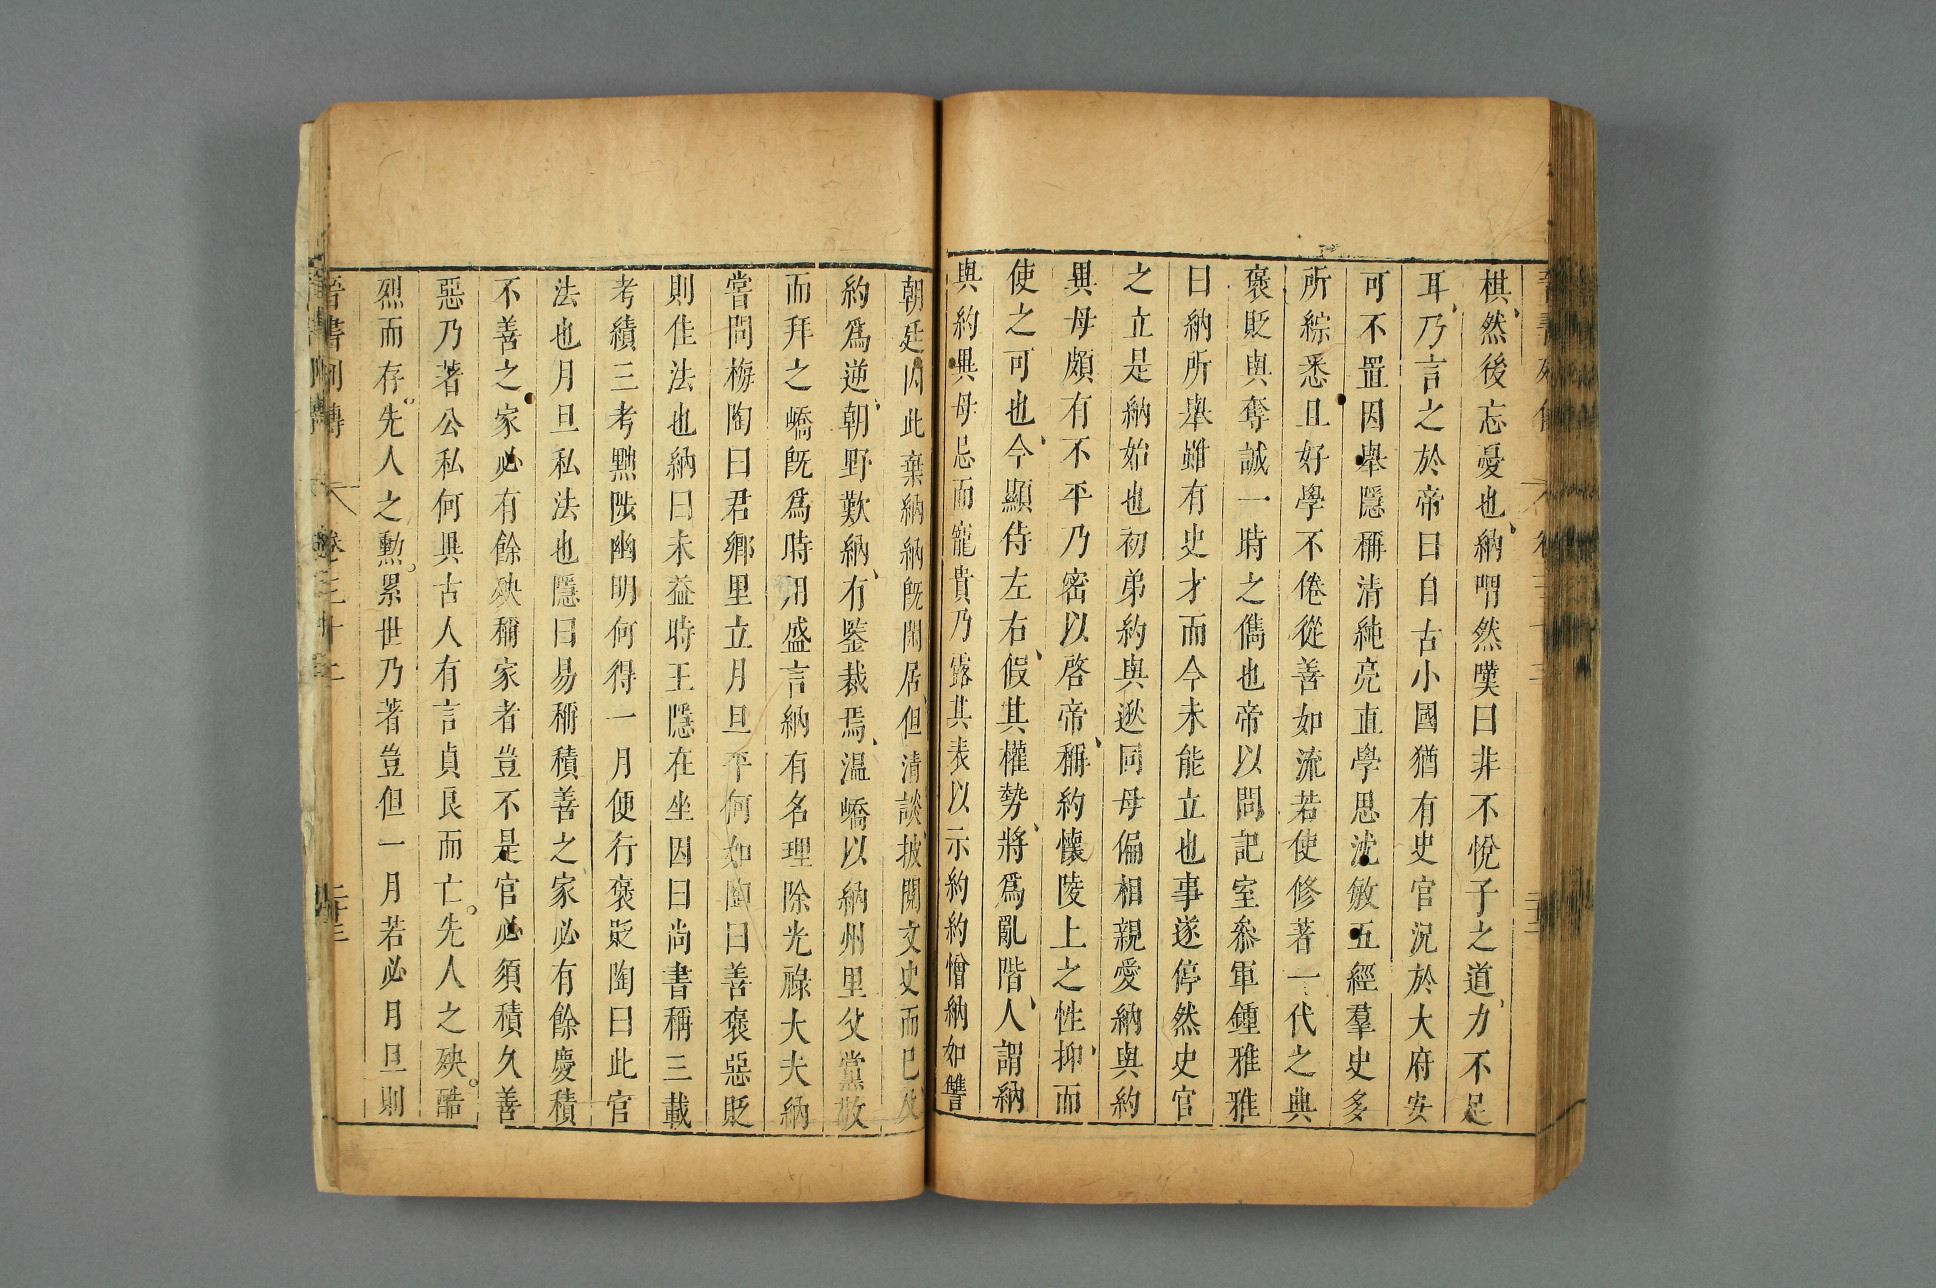 棋然後忘憂也納喟然嘆曰非不悅子之道力不足
耳乃言之於帝曰自古小國猶有史官況於大府安
可不置因舉隱稱清純亮直學思沈敏五經羣史多
所綜悉且好學不倦從善如流若使修著一代之典
褒貶與奪誠一時之儁也帝以問記室參軍鍾雅雅
曰納所舉雖有史才而今未能立也事遂停然史官
之立是納始也初弟約與逖同母偏相親愛納與約
異母頗有不平乃密以啓帝稱約懷陵上之性抑而
使之可也今顯侍左右假其權勢將爲亂階人謂納
與約異母忌而寵貴乃露其表以示約約憎納如讐
朝廷因此棄納納旣閑居但清談披閱文史而已及
約爲逆朝野歎納有鑒裁焉溫嶠以納州里父黨敬
而拜之嶠旣爲時用盛言納有名理除光祿大夫納
嘗問梅陶曰君鄉里立月旦平何如陶曰善褒惡貶
則佳法也納曰未益時王隱在坐因曰尚書稱三載
考績三考黜陟幽明何得一月便行褒貶陶曰此官
法也月旦私法也隱曰易稱積善之家必有餘慶積
不善之家必有餘殃稱家者豈不是官必須積久善
惡乃著公私何異古人有言貞良而亡先人之殃酷
烈而存先人之勳累世乃著豈但一月若必月旦則
晉書列傳 卷三十二 二十三